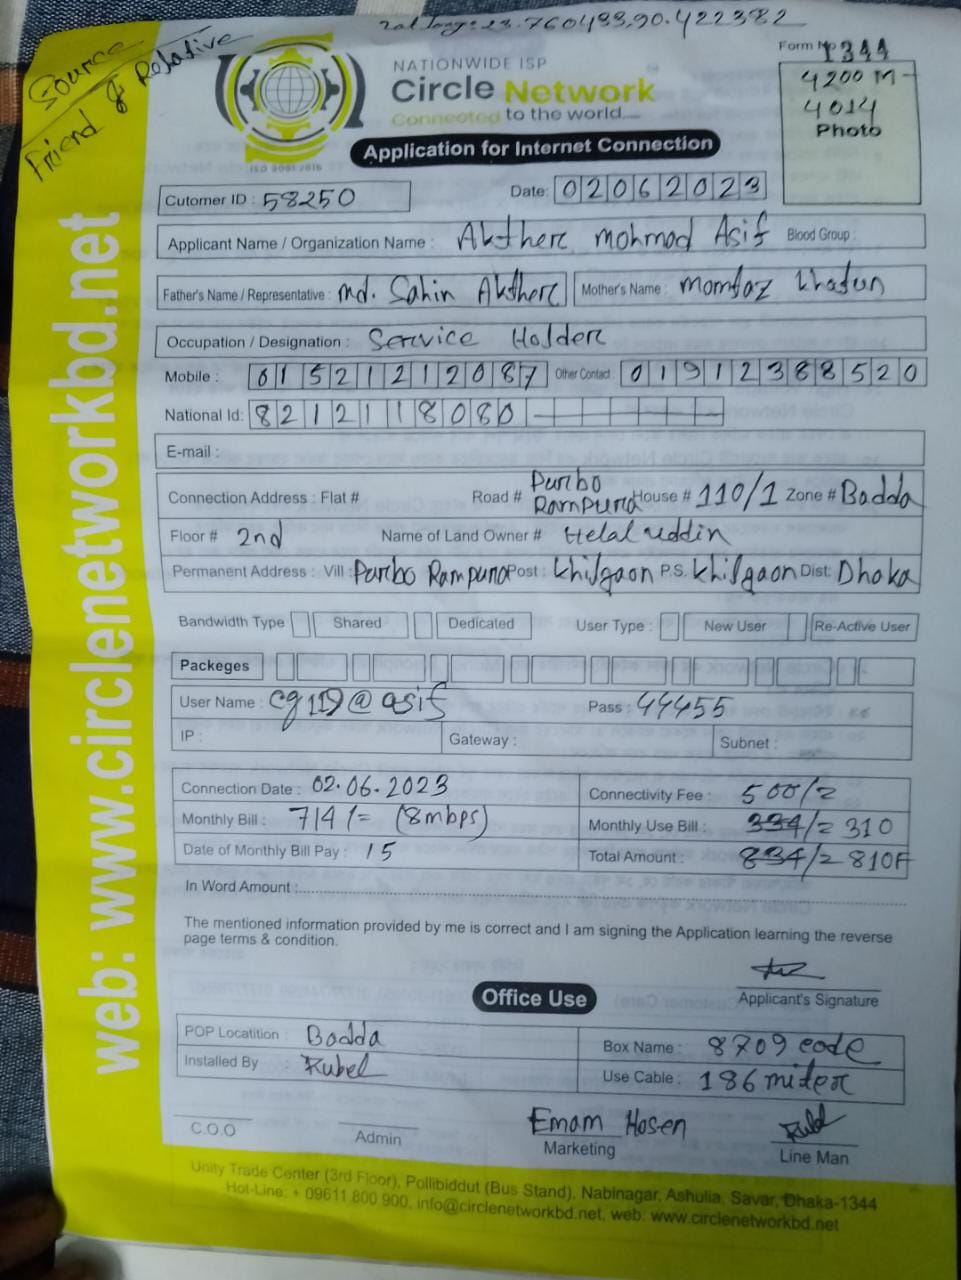 Lat Long: 23.760493,90.422382
Source
Friend & Relative
NATIONWIDE ISP
Circle Network
Connected to the world....
ISO 9001:2015
Form No 1344
4200 M-
4014
Photo
Application for Internet Connection
Cutomer ID : 58250
Date: 02062023
Applicant Name / Organization Name : Akther mohmod Asif Blood Group :
Father's Name / Representative : md. Sahin Akther Mother's Name : momtaz khatun
Occupation / Designation : Service Holder
Mobile : 01521212087 Other Contact : 01912388520
National Id: 8212118080
E-mail :
Connection Address : Flat # Road # Purbo Rampura House # 110/1 Zone # Badda
Floor # 2nd Name of Land Owner # Helal uddin
Permanent Address : Vill : Purbo Rampura Post : Khilgaon P.S. Khilgaon Dist: Dhaka
Bandwidth Type Shared Dedicated User Type : New User Re-Active User
Packeges
User Name : @asif Pass : 44455
IP : Gateway : Subnet :
Connection Date : 02.06.2023 Connectivity Fee : 500/=
Monthly Bill : 714/= (8mbps) Monthly Use Bill : 334/= 310
Date of Monthly Bill Pay : 15 Total Amount : 834/= 810
In Word Amount :
The mentioned information provided by me is correct and I am signing the Application learning the reverse
page terms & condition.
Applicant's Signature
Office Use
POP Locatition : Badda Box Name : 8709 code
Installed By : Rubel Use Cable : 186 miter
C.O.O Admin Emam Hosen Marketing Line Man
Unity Trade Center (3rd Floor), Pollibiddut (Bus Stand), Nabinagar, Ashulia, Savar, Dhaka-1344
Hot-Line: + 09611 800 900, info@circlenetworkbd.net, web: www.circlenetworkbd.net
web: www.circlenetworkbd.net